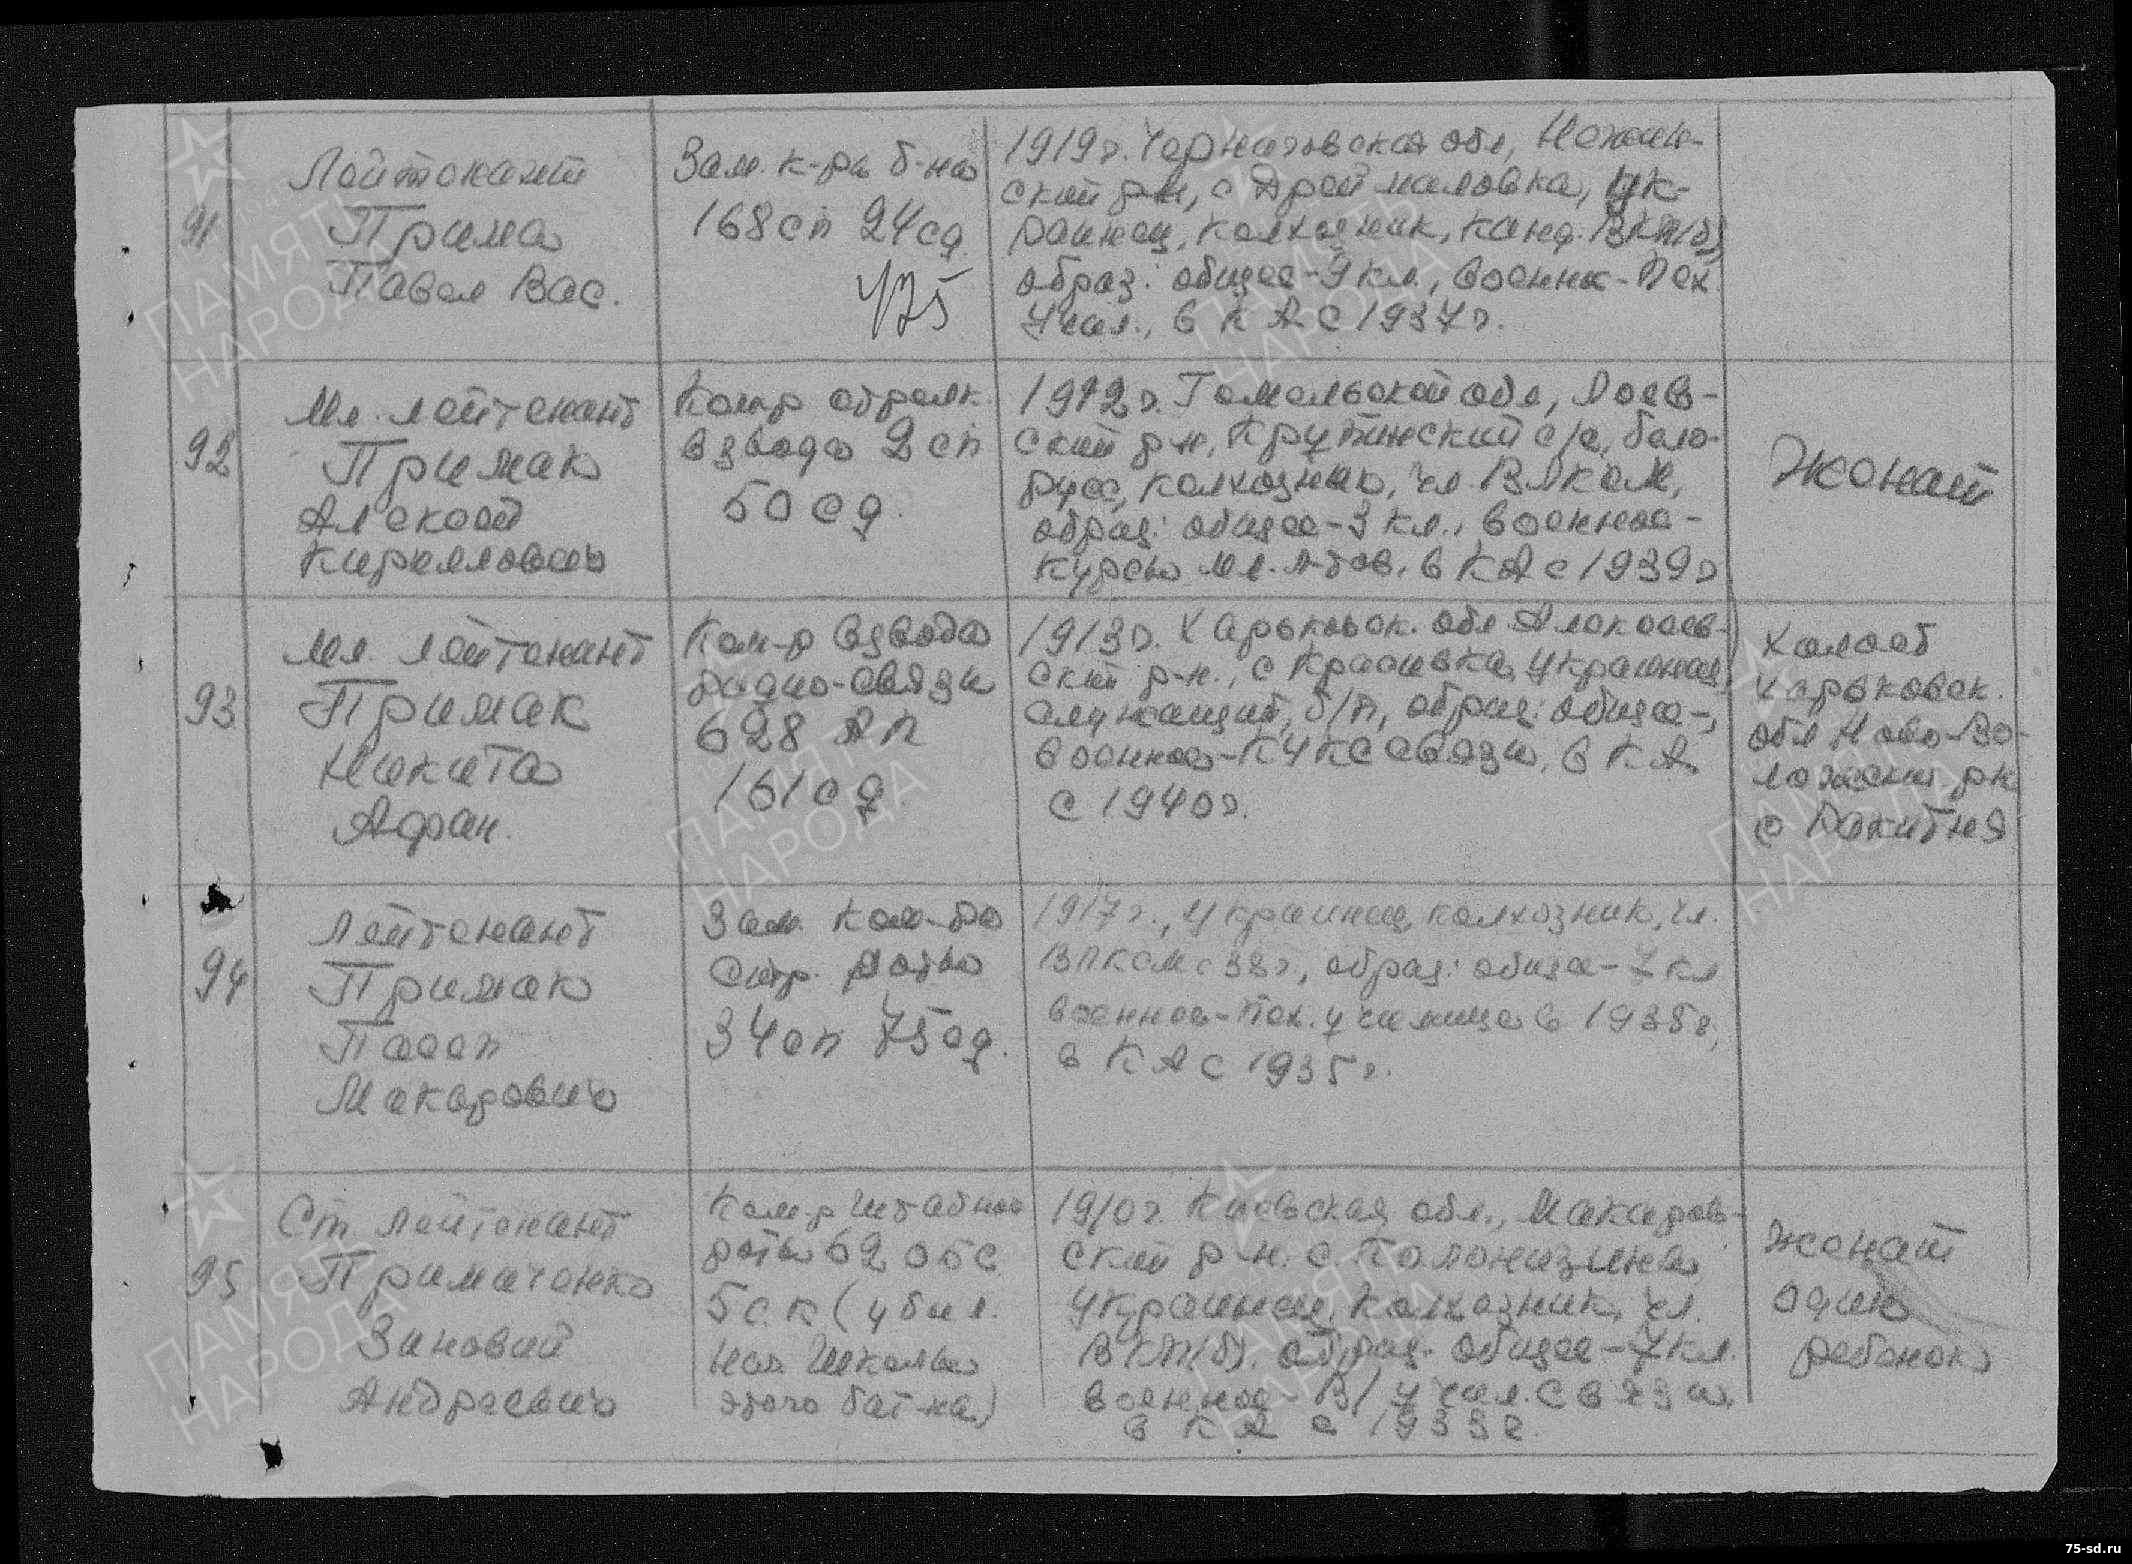 91
Лейтенант
Прима
Павел Вас.
Зам. к-ра б-на
168 сп 24 сд
475
1919 г. Черниговская обл, Нежин-
ский р-н, с Дреймаловка, Ук-
раинец, колхозник, канд. ВКП(б),
образ: общее - 9 кл., военное - Пех.
Учил., в КА с 1937 г.
92
Мл. лейтенант
Примак
Алексей
Кириллович
Ком-р стрелк.
взвода 2 сп
50 сд.
1912 г. Гомельской обл, Лоев-
ский р-н, Крупинский с/с, бело-
русс, колхозник, чл. ВЛКСМ,
образ: общее - 3 кл., военное -
Курсы мл. л-тов. в КА с 1939 г
Женат
93
Мл. лейтенант
Примак
Никита
Афан.
Ком-р взвода
радио-связи
628 АП
161 сд
1913 г. Харьковск. обл Алексеев-
ский р-н., с Красивка, Украинец,
служащий, б/п, образ: общее -,
военное - КУКС связи, в КА
с 1940 г.
Холост
Харьковск.
обл Ново-Во-
р-н
с Ракитня
94
Лейтенант
Примак
Макарович
Зам. Ком-ра
Стр. роты
34 сп 75 сд.
1917 г., Украинец, колхозник, чл.
ВЛКСМ с 38 г, образ: общее - 7 кл
военное - Пех. училище в 1938 г,
в КА с 1935 г.
95
Ст лейтенант
Примаченко
Зиновий
Андреевич
Ком-р штабной
роты 62 обс
5 с.к (убит.
нач. школы
этого бат-на)
1910 г. Киевская обл., Макаров-
ский р-н. с.
украинец, колхозник, чл.
ВКП(б). образ. общее - 7 кл.
военное - В/учил. Связи,
в КА с 1933 г.
женат
один
ребенок
ПАМЯТЬ
НАРОДА
ПАМЯТЬ
НАРОДА
ПАМЯТЬ
НАРОДА
ПАМЯТЬ
НАРОДА
ПАМЯТЬ
НАРОДА
ПАМЯТЬ
НАРОДА
75-sd.ru